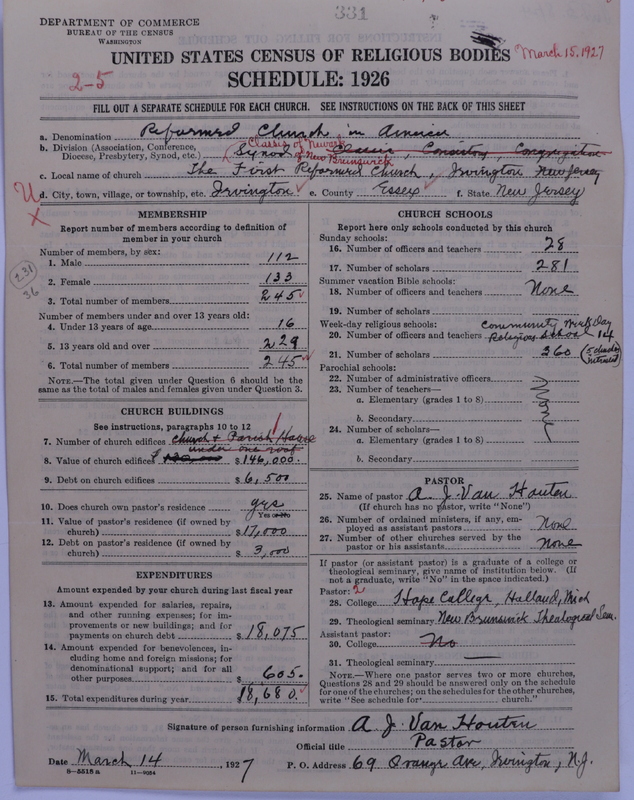 331
DEPARTMENT OF COMMERCE
BUREAU OF THE CENSUS
WASHINGTON
UNITED STATES CENSUS OF RELIGIOUS BODIES
March 15, 1927
2-5
SCHEDULE: 1926
FILL OUT A SEPARATE SCHEDULE FOR EACH CHURCH. SEE INSTRUCTIONS ON THE BACK OF THIS SHEET
a. Denomination Reformed Church in America
Classis of Newark
b. Division (Association, Conference, Diocese, Presbytery, Synod, etc.) Synod of New Brunswick Classis, Consistory, Congregation
c. Local name of church The First Reformed Church, Irvington New Jersey
d. City, town, village, or township, etc. Irvington e. County Essex f. State New Jersey
U
X
MEMBERSHIP
Report number of members according to definition of
member in your church
Number of members, by sex:
1. Male 112
2. Female 133
3. Total number of members 245
Number of members under and over 13 years old:
4. Under 13 years of age 16
5. 13 years old and over 229
6. Total number of members 245
NOTE.—The total given under Question 6 should be
the same as the total of males and females given under Question 3.
CHURCH BUILDINGS
See instructions, paragraphs 10 to 12
7. Number of church edifices Church & Parish House 1
under one roof
8. Value of church edifices $ $ 146,000.
9. Debt on church edifices $ 6,500
10. Does church own pastor's residence yes
Yes or No
11. Value of pastor's residence (if owned by
church) $ 17,000
12. Debt on pastor's residence (if owned by
church) $ 3,000
EXPENDITURES
Amount expended by your church during last fiscal year
13. Amount expended for salaries, repairs,
and other running expenses; for im-
provements or new buildings; and for
payments on church debt $ 18,075
14. Amount expended for benevolences, in-
cluding home and foreign missions; for
denominational support; and for all
other purposes $ 605.
15. Total expenditures during year $18,680.
CHURCH SCHOOLS
Report here only schools conducted by this church
Sunday schools:
16. Number of officers and teachers 28
17. Number of scholars 281
Summer vacation Bible schools:
18. Number of officers and teachers None
19. Number of scholars
Week-day religious schools: Community Week Day
20. Number of officers and teachers Religious School 14
21. Number of scholars 360
Parochial schools:
22. Number of administrative officers
23. Number of teachers—
a. Elementary (grades 1 to 8)
b. Secondary
None
24. Number of scholars—
a. Elementary (grades 1 to 8)
b. Secondary
PASTOR
25. Name of pastor A. J. Van Houten
(If church has no pastor, write "None")
26. Number of ordained ministers, if any, em-
ployed as assistant pastors None
27. Number of other churches served by the
pastor or his assistants None
If pastor (or assistant pastor) is a graduate of a college or
theological seminary, give name of institution below. (If
not a graduate, write "No" in the space indicated.)
Pastor: 2
28. College Hope College, Holland, Mich
29. Theological seminary New Brunswick Theological Sem.
Assistant pastor:
30. College No
31. Theological seminary
NOTE.—Where one pastor serves two or more churches,
Questions 28 and 29 should be answered only on the schedule
for one of the churches; on the schedules for the other churches,
write "See schedule for church."
Signature of person furnishing information A. J. Van Houten
Official title Pastor
Date March 14 1927 P. O. Address 69 Orange Ave, Irvington, N.J.
8-5518a 11-9084